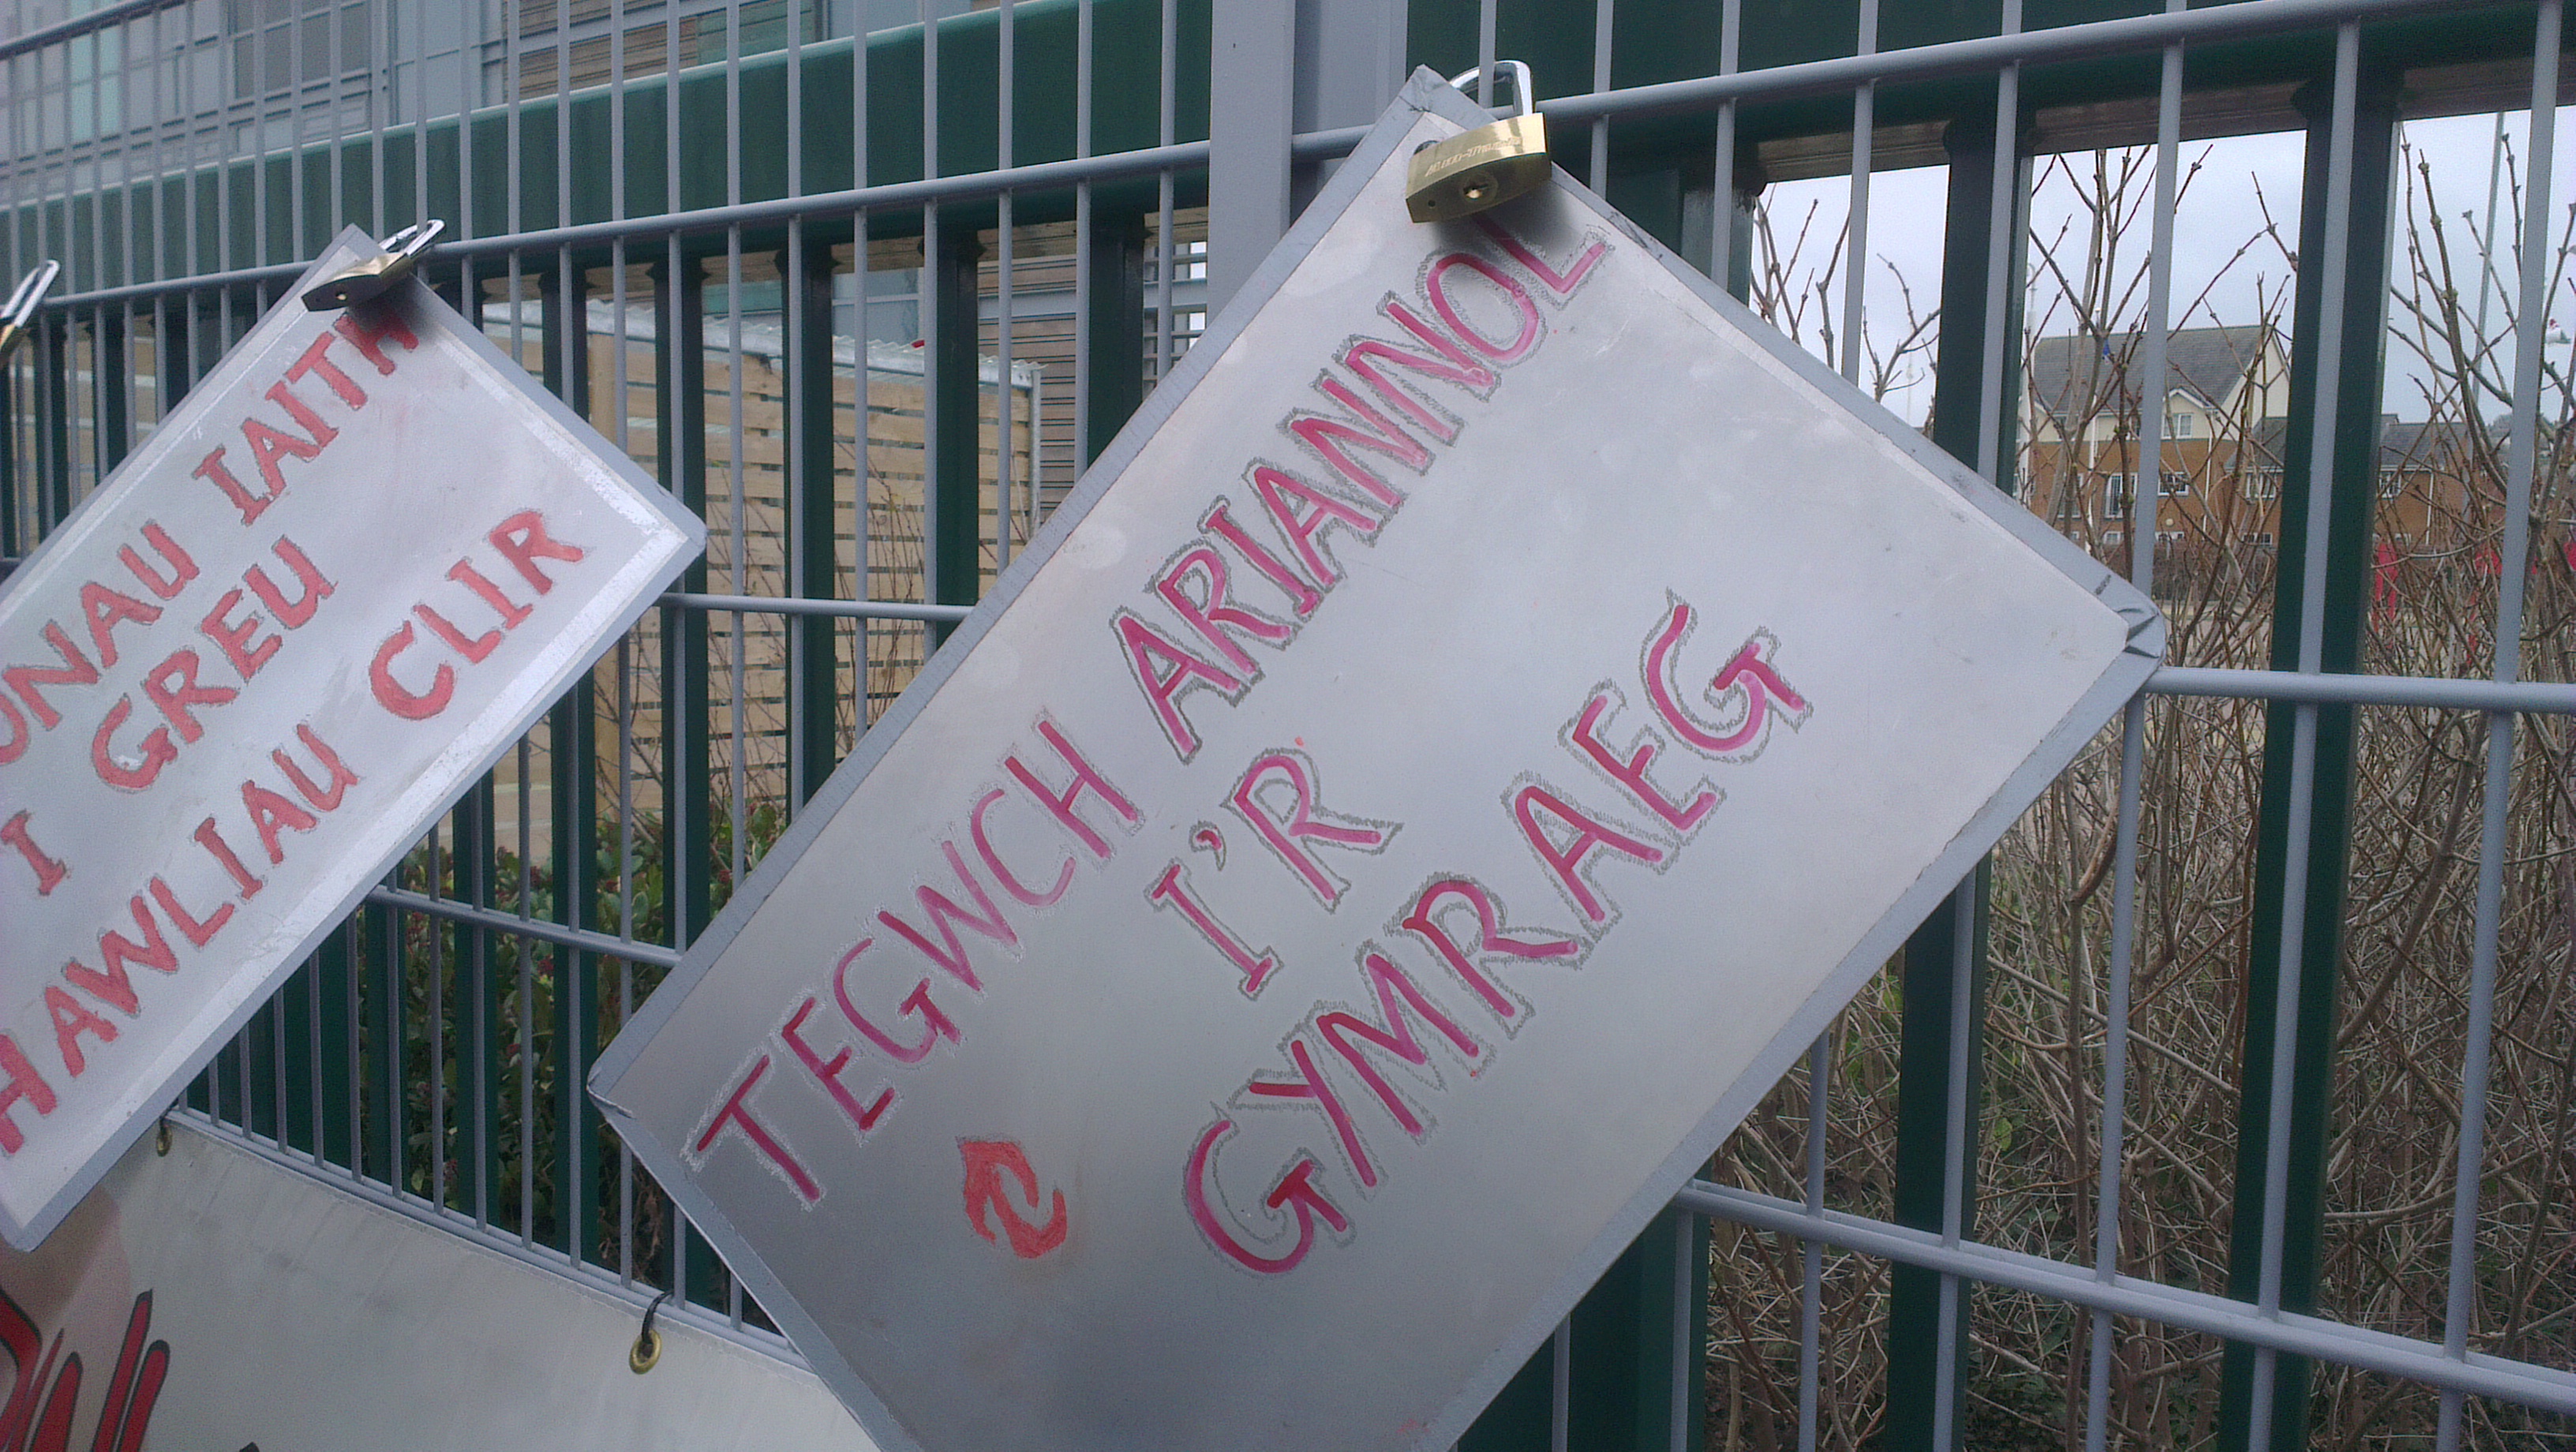 IAITH
I GREU
HAWLIAU CLIR
TEGWCH ARIANNOL
I'R
GYMRAEG